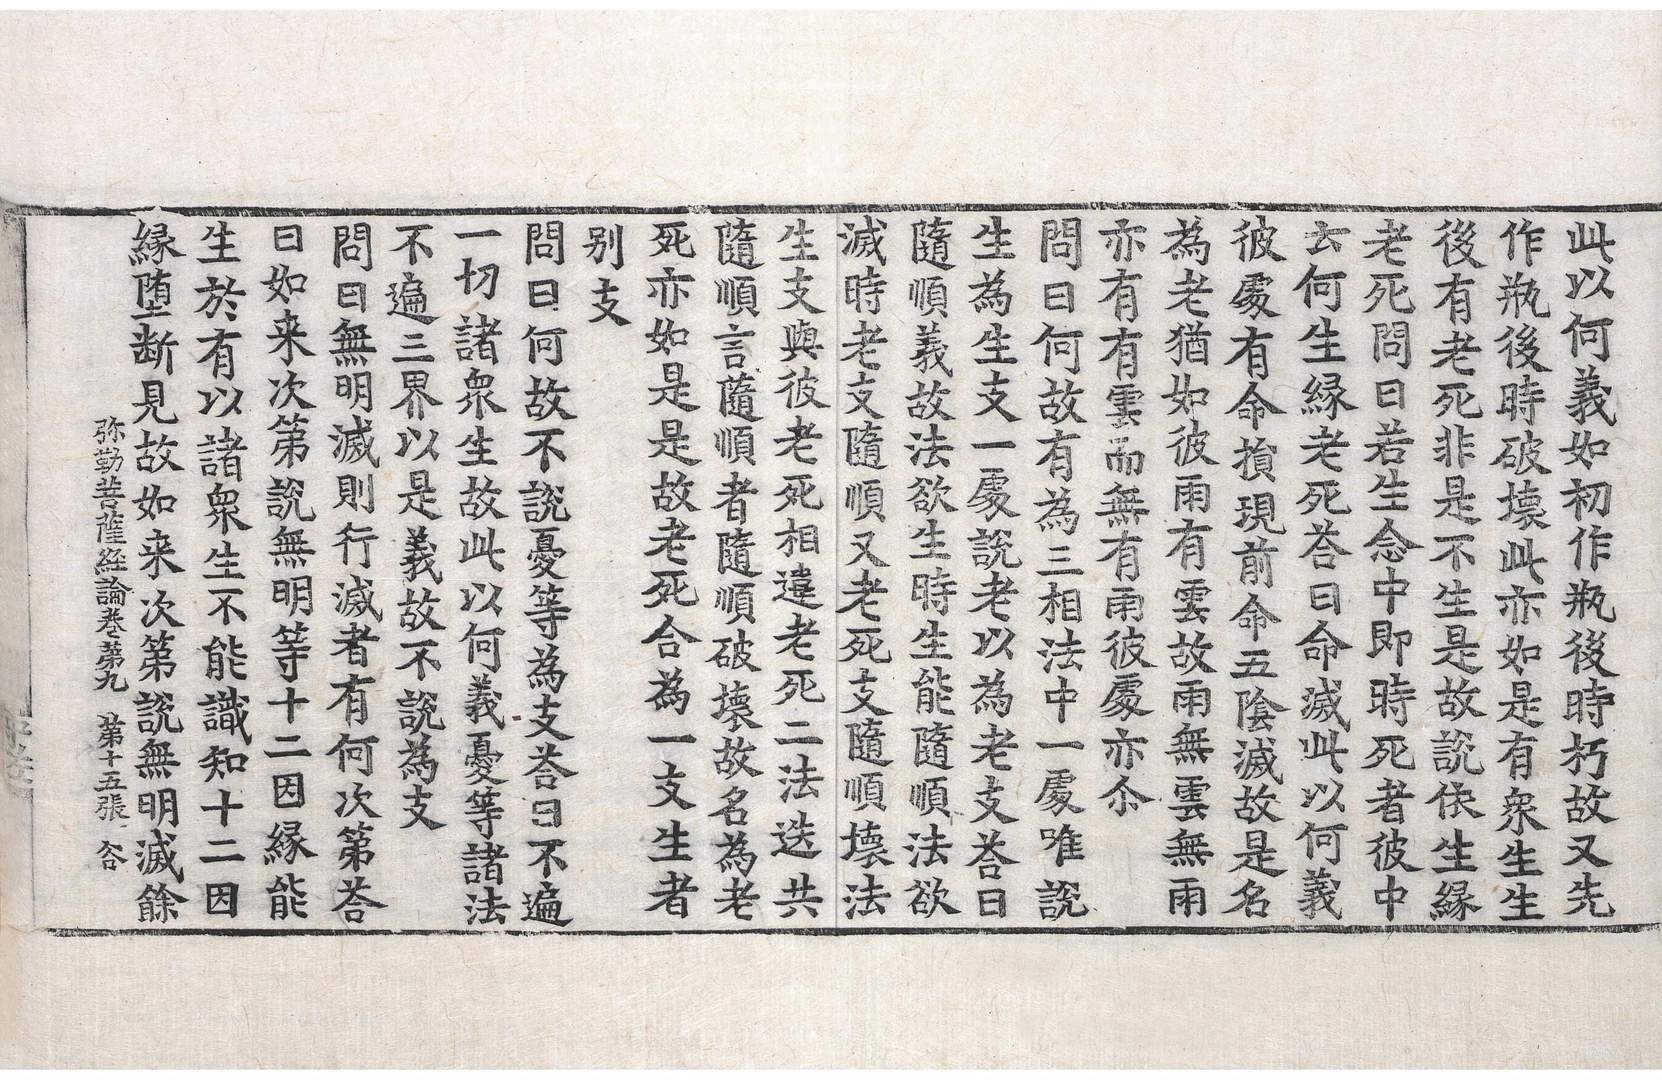 此以何義如初作瓶後時朽故又先
作瓶後時破壞此亦如是有衆生生
後有老死非是不生是故說依生緣
老死問曰若生念中即時死者彼中
云何生緣老死荅曰命滅此以何義
彼處有命損現前命五陰滅故是名
為老猶如彼雨有雲故雨無雲無雨
亦有有雲而無有雨彼處亦尒
問曰何故有為三相法中一處唯說
生為生支一處說老以為老支荅曰
隨順義故法欲生時生能隨順法欲
滅時老支隨順又老死支隨順壞法
生支與彼老死相違老死二法迭共
隨順言隨順者隨順破壞故名為老
死亦如是是故老死合為一支生者
別支
問曰何故不說憂等為支荅曰不遍
一切諸衆生故此以何義憂等諸法
不遍三界以是義故不說為支
問曰無明滅則行滅者有何次第荅
曰如来次第說無明等十二因緣能
生於有以諸衆生不能識知十二因
緣堕斷見故如来次第說無明滅餘
弥勒菩薩経論卷第九 第十五張 谷